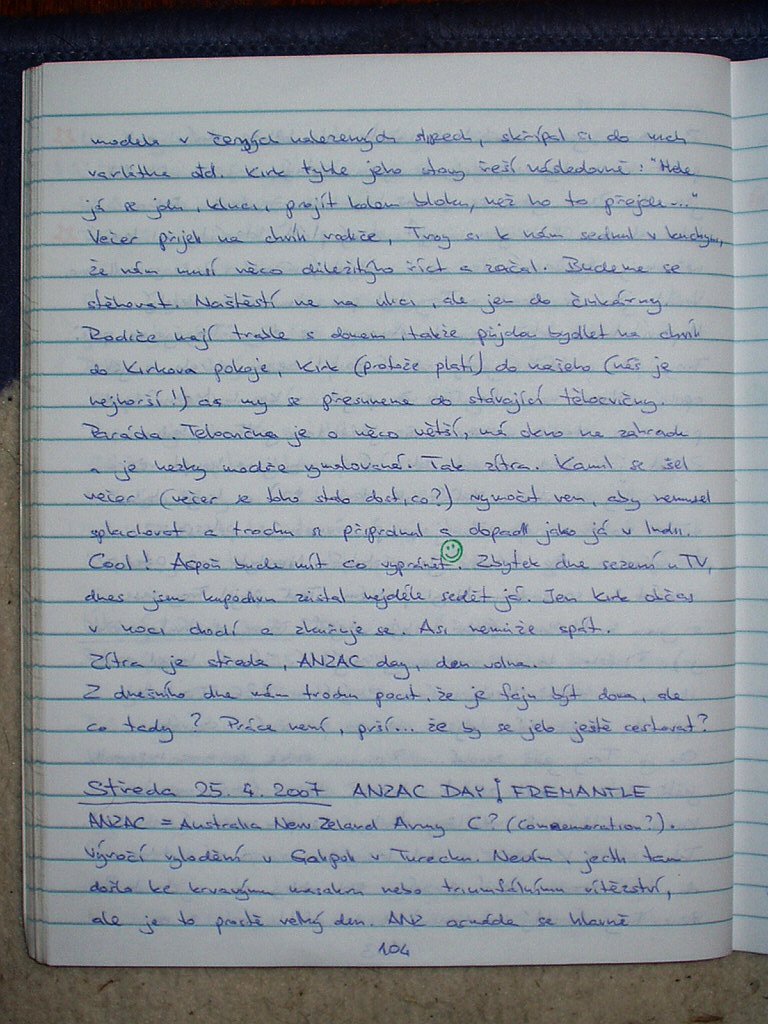 modela v černých nařezených slipech, skřípal si do nich
varlátka atd. Kirk tyhle jeho stavy řeší následovně: "Hele
já se jdu, kluci, projít kolem bloku, než ho to přejde..."
Večer přijeli na chvíli rodiče, Troy si k nám sednul v kuchyni,
že nám musí něco důležitýho říct a začal. Budeme se
stěhovat. Naštěstí ne na ulici, ale jen do činkárny.
Rodiče mají trable s domem, takže přijdou bydlet na chvíli
do Kirkova pokoje, Kirk (protože platí) do našeho (náš je
nejhorší!) a my se přesuneme do stávající tělocvičny.
Paráda. Tělocvična je o něco větší, má okno na zahradu
a je hezky modře vymalovaná. Tak zítra. Kamil se šel
večer (večer se toho stalo dost, co?) vymočit ven, aby nemusel
splachovat a trochu si připrdnul a dopadl jako já v Indii.
Cool! Aspoň bude mít co vyprávět. Zbytek dne sezení u TV,
dnes jsem kupodivu zůstal nejdéle sedět já. Jen Kirk občas
v noci chodí a zkuřuje se. Asi nemůže spát.
Zítra je středa, ANZAC day, den volna.
Z dnešního dne mám trochu pocit, že je fajn být doma, ale
co tady? Práce není, prší... že by se jelo ještě cestovat?
Středa 25. 4. 2007 ANZAC DAY FREMANTLE
ANZAC = Australia New Zeland Army C? (Commemoration?).
Výročí vylodění v Galipoli v Turecku. Nevím, jestli tam
došlo ke krvavýmu masakru nebo triumfálnímu vítězství,
ale je to prostě velký den. ANZ armáda se hlavně
104